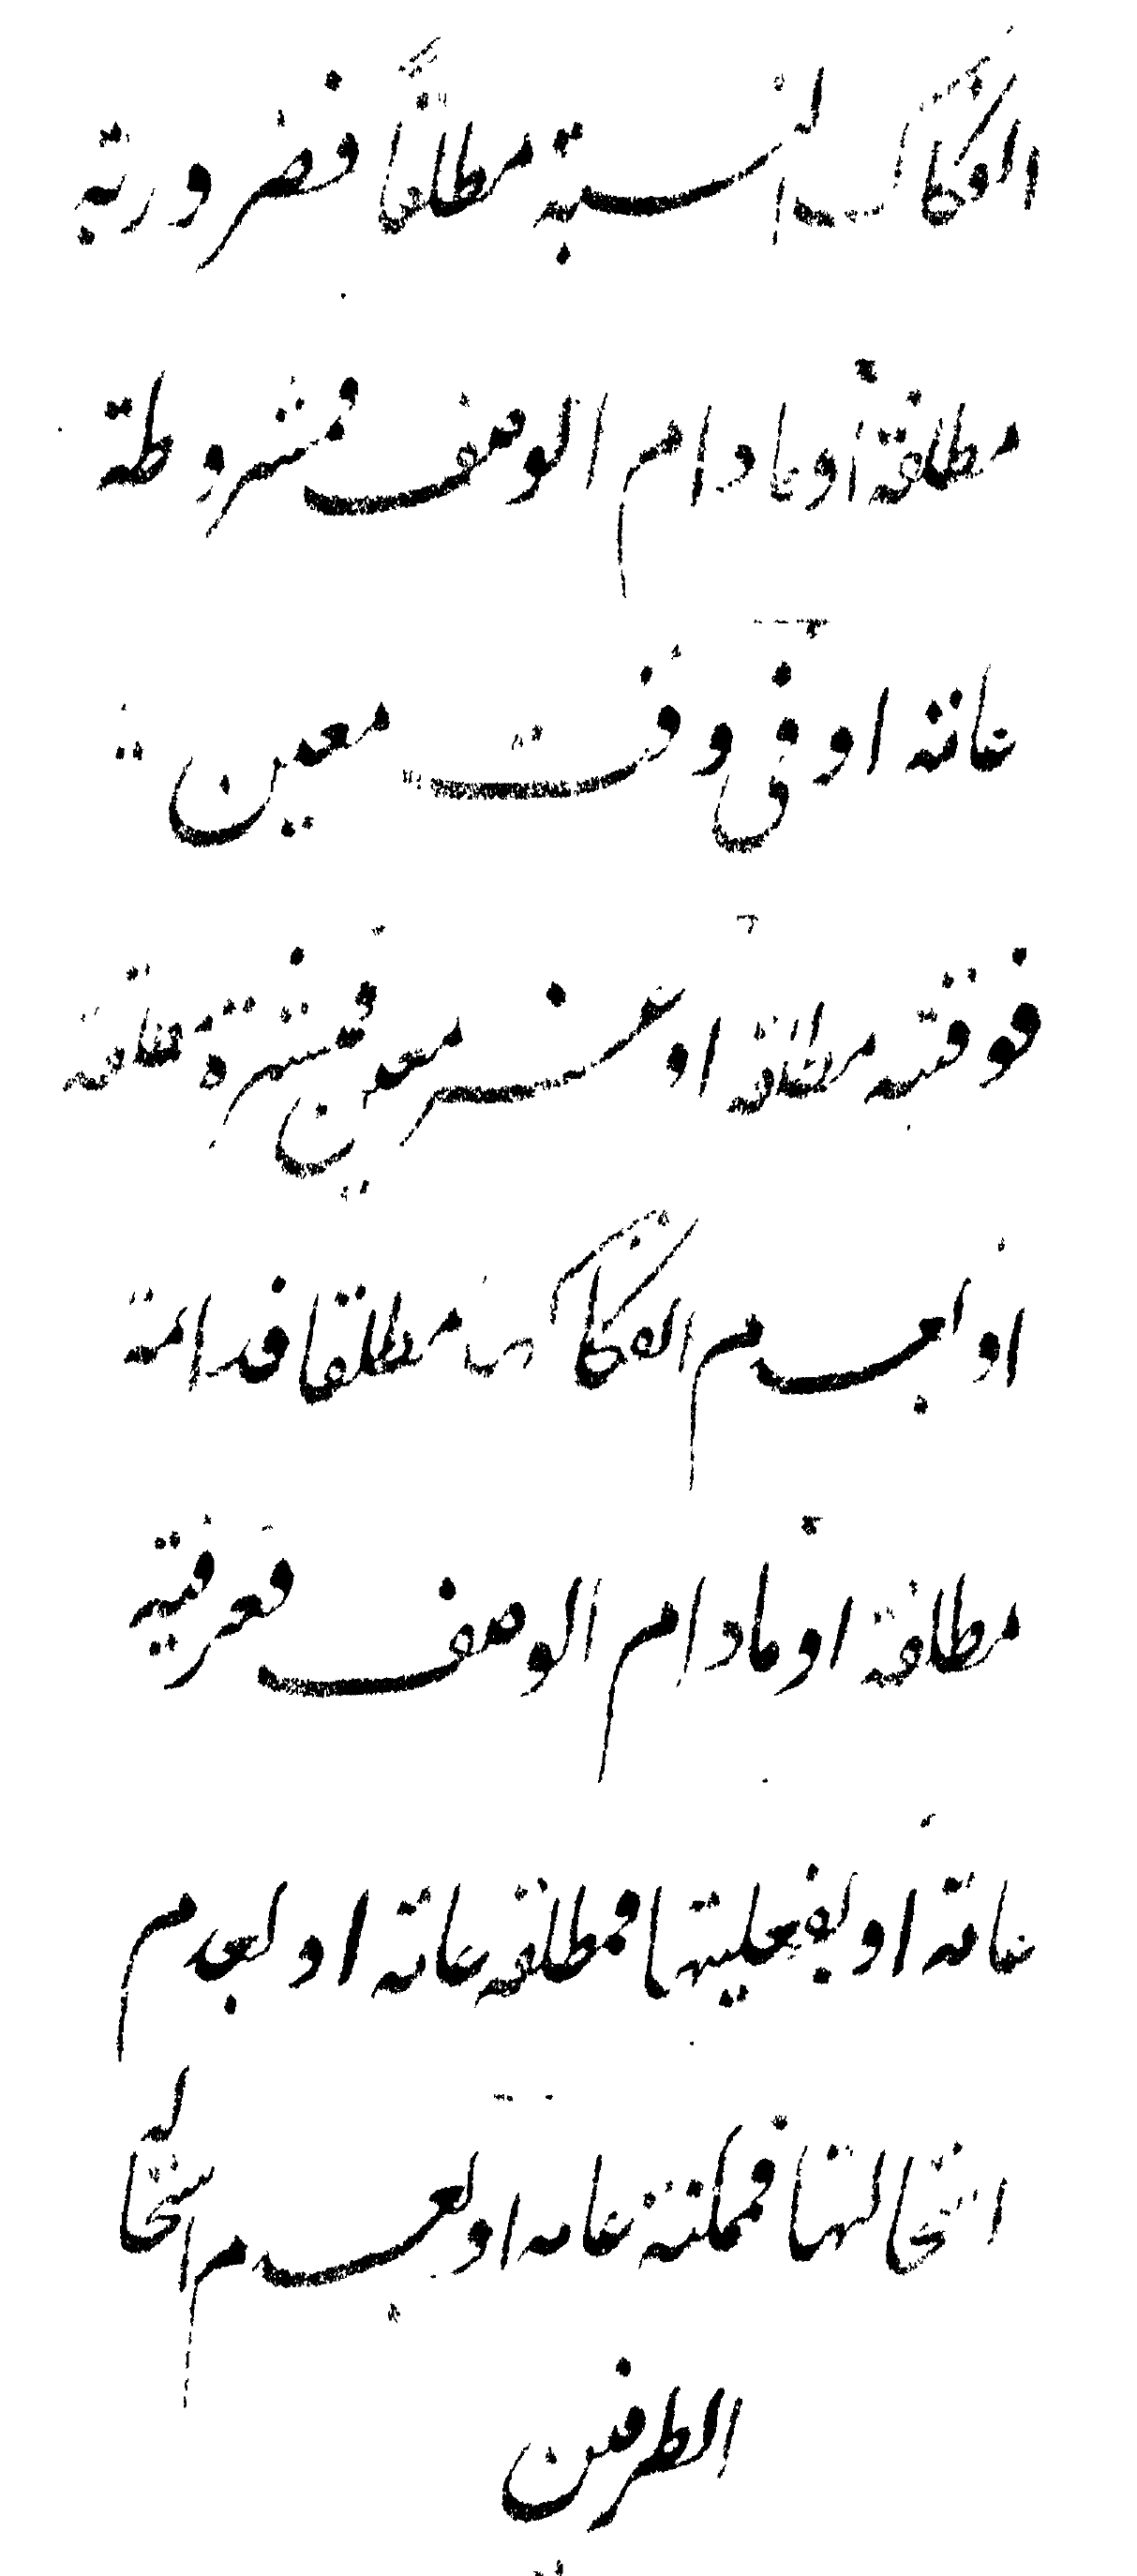 انفكاك النسبة مطلقاً فضرورية
مطلقة أو مادام الوصف فمشروطة
عامة او في وقت معين
فوقتية مطلقة او غير معين فمنتشرة مطلقة
او بعدم انفكاكها مطلقا فدائمة
مطلقة او مادام الوصف فعرفية
عامة او بفعليتها فمطلقة عامة او بعدم
استحالتها فممكنة عامة او بعدم استحالة
الطرفين